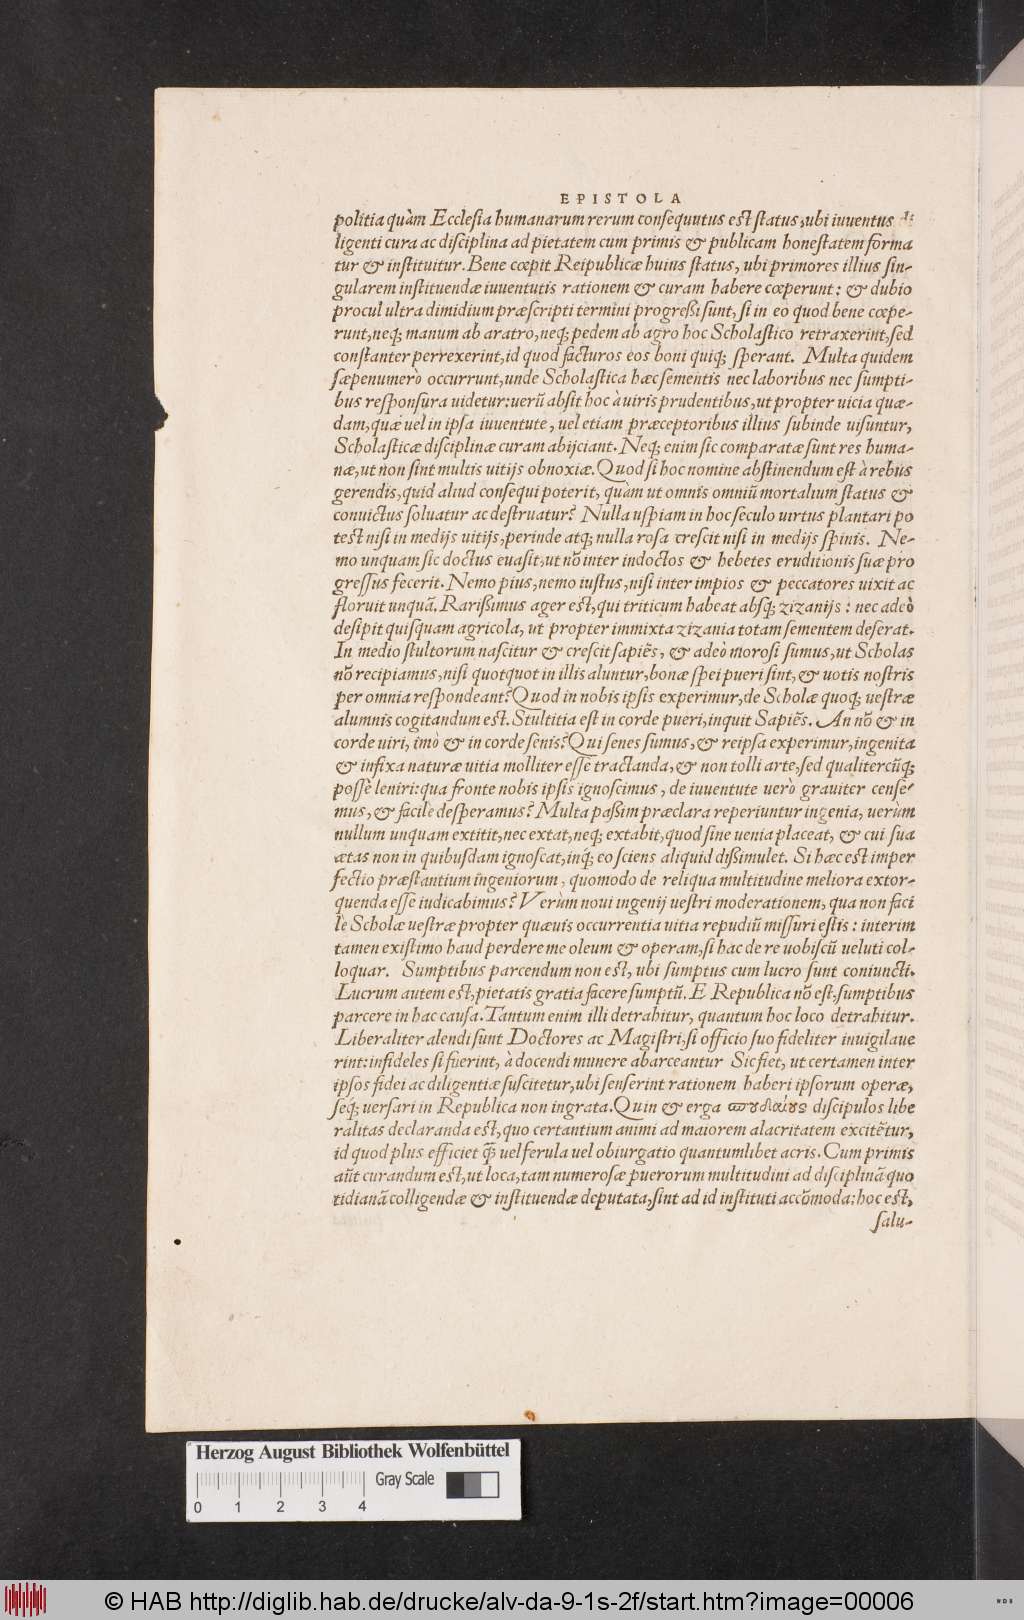 EPISTOLA
politia quàm Ecclesia humanarum rerum consequutus est status, ubi iuuentus di
ligenti cura ac disciplina ad pietatem cum primis & publicam honestatem forma
tur & instituitur. Bene cœpit Reipublicæ huius status, ubi primores illius sin-
gularem instituendæ iuuentutis rationem & curam habere cœperunt: & dubio
procul ultra dimidium præscripti termini progreßi sunt, si in eo quod bene cœpe-
runt, neq; manum ab aratro, neq; pedem ab agro hoc Scholastico retraxerint, sed
constanter perrexerint, id quod facturos eos boni quiq; sperant. Multa quidem
sæpenumerò occurrunt, unde Scholastica hæc sementis nec laboribus nec sumpti-
bus responsura uidetur: uerũ absit hoc à uiris prudentibus, ut propter uicia quæ-
dam, quæ uel in ipsa iuuentute, uel etiam præceptoribus illius subinde uisuntur,
Scholasticæ disciplinæ curam abijciant. Neq; enim sic comparatæ sunt res huma-
næ, ut non sint multis uitijs obnoxiæ. Quod si hoc nomine abstinendum est à rebus
gerendis, quid aliud consequi poterit, quàm ut omnis omniũ mortalium status &
conuictus soluatur ac destruatur? Nulla uspiam in hoc seculo uirtus plantari po
test nisi in medijs uitijs, perinde atq; nulla rosa crescit nisi in medijs spinis. Ne-
mo unquam sic doctus euasit, ut nõ inter indoctos & hebetes eruditionis suæ pro
gressus fecerit. Nemo pius, nemo iustus, nisi inter impios & peccatores uixit ac
floruit unquã. Rarißimus ager est, qui triticum habeat absq; zizanijs: nec adeò
desipit quisquam agricola, ut propter immixta zizania totam sementem deserat.
In medio stultorum nascitur & crescit sapiẽs, & adeò morosi sumus, ut Scholas
nõ recipiamus, nisi quotquot in illis aluntur, bonæ spei pueri sint, & uotis nostris
per omnia respondeant? Quod in nobis ipsis experimur, de Scholæ quoq; uestræ
alumnis cogitandum est. Stultitia est in corde pueri, inquit Sapiẽs. An nõ & in
corde uiri, imò & in corde senis? Qui senes sumus, & reipsa experimur, ingenita
& infixa naturæ uitia molliter esse tractanda, & non tolli arte, sed qualitercũq;
posse leniri: qua fronte nobis ipsis ignoscimus, de iuuentute uerò grauiter cense-
mus, & facilè desperamus? Multa paßim præclara reperiuntur ingenia, uerùm
nullum unquam extitit, nec extat, neq; extabit, quod sine uenia placeat, & cui sua
ætas non in quibusdam ignoscat, inq; eo sciens aliquid dißimulet. Si hæc est imper
fectio præstantium ingeniorum, quomodo de reliqua multitudine meliora extor-
quenda esse iudicabimus? Verùm noui ingenij uestri moderationem, qua non faci
le Scholæ uestræ propter quæuis occurrentia uitia repudiũ missuri estis: interim
tamen existimo haud perdere me oleum & operam, si hac de re uobiscũ ueluti col-
loquar. Sumptibus parcendum non est, ubi sumptus cum lucro sunt coniuncti.
Lucrum autem est, pietatis gratia facere sumptũ. E Republica nõ est, sumptibus
parcere in hac causa. Tantum enim illi detrahitur, quantum hoc loco detrahitur.
Liberaliter alendi sunt Doctores ac Magistri, si officio suo fideliter inuigilaue
rint: infideles si fuerint, à docendi munere abarceantur Sic fiet, ut certamen inter
ipsos fidei ac diligentiæ suscitetur, ubi senserint rationem haberi ipsorum operæ,
seq́; uersari in Republica non ingrata. Quin & erga σπουδαίους discipulos libe
ralitas declaranda est, quo certantium animi ad maiorem alacritatem excitẽtur,
id quod plus efficiet q̃ uel ferula uel obiurgatio quantumlibet acris. Cum primis
aũt curandum est, ut loca, tam numerosæ puerorum multitudini ad disciplinã quo
tidianã colligendæ & instituendæ deputata, sint ad id instituti accõmoda: hoc est,
salu-
Herzog August Bibliothek Wolfenbüttel
Gray Scale
0 1 2 3 4
© HAB http://diglib.hab.de/drucke/alv-da-9-1s-2f/start.htm?image=00006